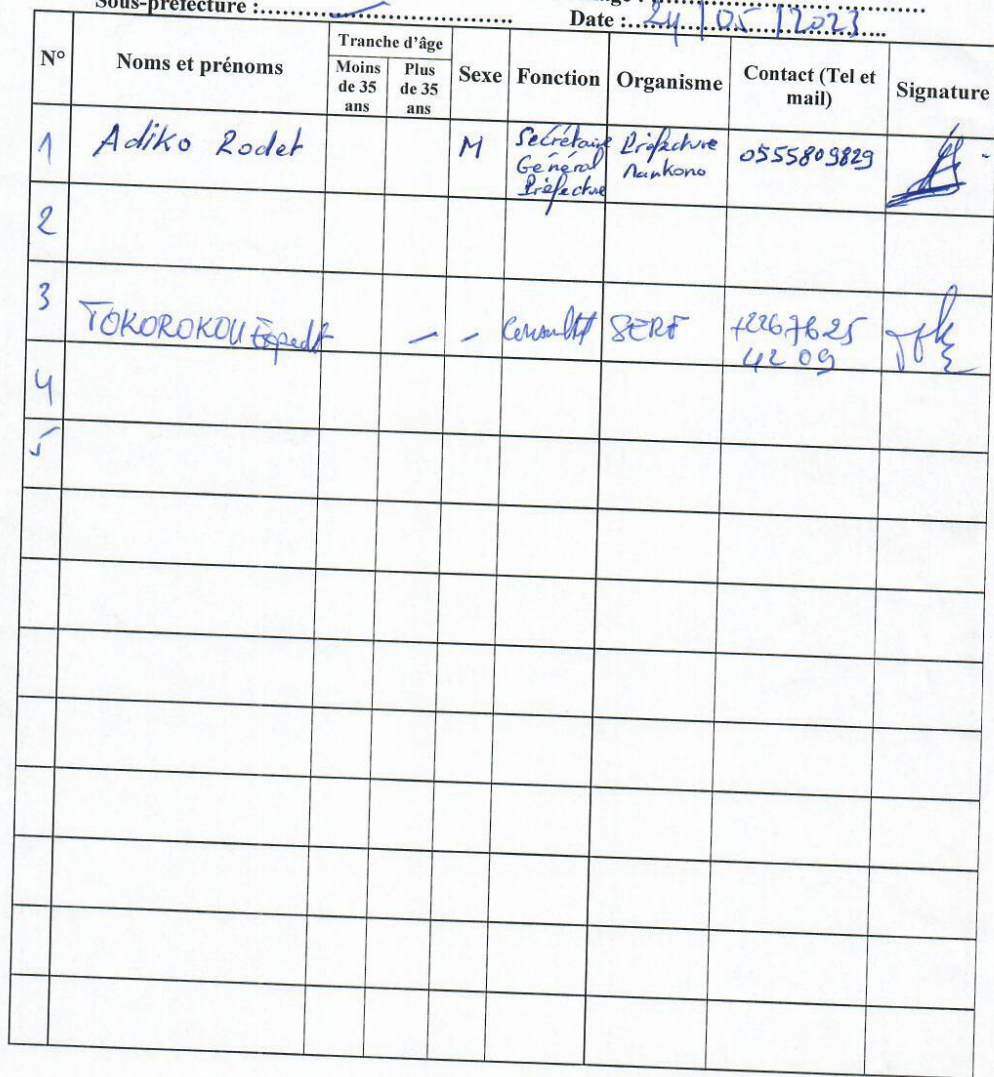 Sous-préfecture :
Date : 24/05/2023
N° Noms et prénoms Tranche d'âge Moins de 35 ans Plus de 35 ans Sexe Fonction Organisme Contact (Tel et mail) Signature
1 Adiko Rodet M Secrétaire Général Préfecture Préfecture Mankono 0555809829
2
3 TOKOROKOU - - SERF +226 76 25 42 09
4
5